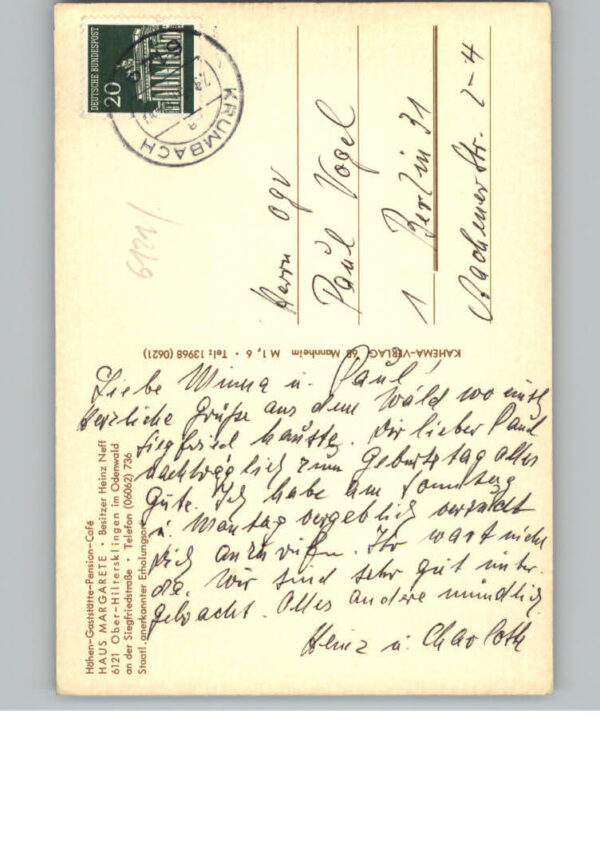 DEUTSCHE BUNDESPOST
20
KRUMBACH
6121/
Herrn OgV
Paul Vogel
1 Berlin 31
Aachener Str. 2-4
KAHEMA-VERLAG 68 Mannheim M 1, 6 · Tel: 13968 (0621)
Höhen-Gaststätte-Pension-Café
HAUS MARGARETE · Besitzer Heinz Neff
6121 Ober-Hiltersklingen im Odenwald
an der Siegfriedstraße · Telefon (06062) 736
Staatl. anerkannter Erholungsort
Liebe Minna u. Paul!
Herzliche Grüße aus dem Wald wo einst
Siegfried hauste. Dir lieber Paul
nachträglich zum Geburtstag alles
Gute. Ich habe am Sonntag
u. Montag vergeblich versucht
Dich anzurufen. Ihr wart nicht
da. Wir sind sehr gut unter-
gebracht. Alles andere mündlich
Heinz u. Charlotte